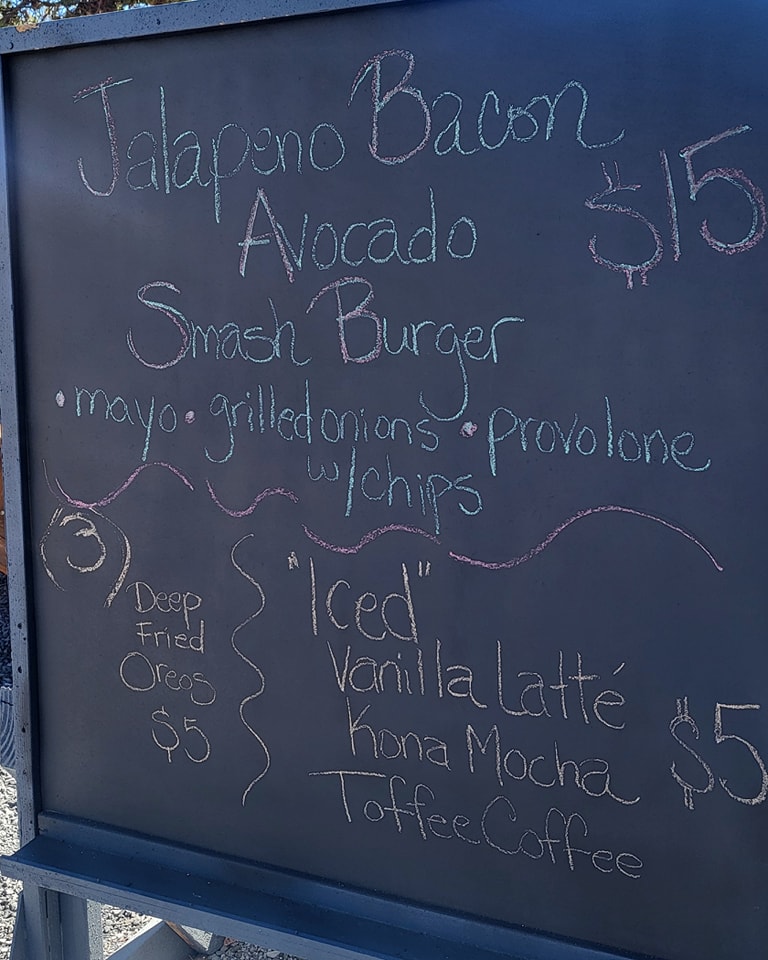 Jalapeno Bacon
Avocado $15
Smash Burger
• mayo • grilled onions • provolone
w/chips
(3)
Deep
Fried
Oreos
$5
"Iced"
Vanilla Latté
Kona Mocha $5
Toffee Coffee